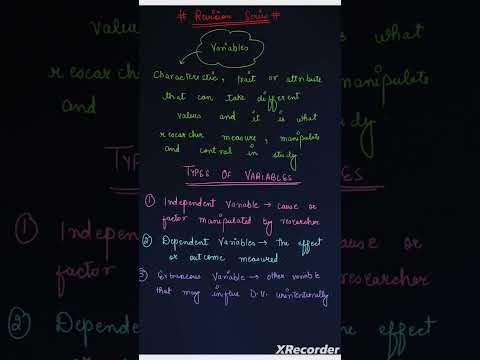 # Revision Series #
Variables
Characteristic, trait or attribute
that can take different
values and it is what
researcher measure, manipulate
and control in study
TYPES OF VARIABLES
① Independent Variable → cause or
factor manipulated by researcher
② Dependent Variables → The effect
or outcome measured
③ Extraneous Variable → other variable
that may influe D.V. unintentionally
XRecorder